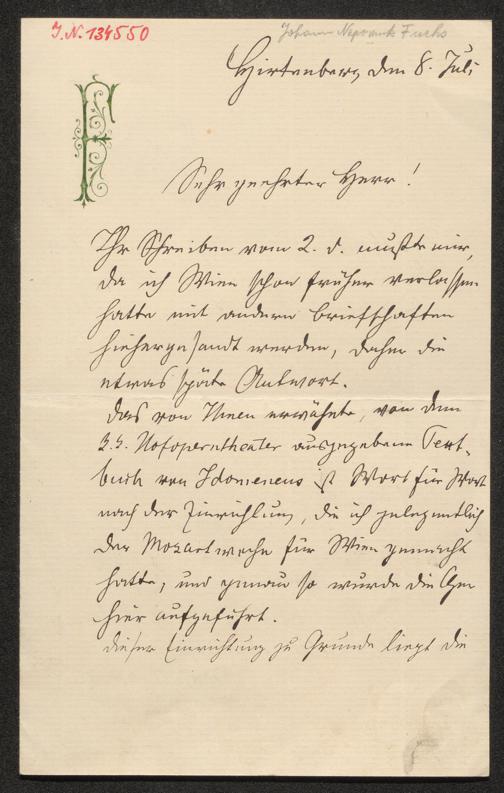 J.N. 134550
Johann Nepomuk Fuchs
Hirtenberg, den 8. Juli
F
Sehr geehrter Herr!
Ihr Schreiben vom 2. d. mußte mir,
da ich Wien schon früher verlassen
hatte mit andern Briefschaften
hiehergesandt werden, daher die
etwas späte Antwort.
Das von Ihnen erwähnte, von dem
k.k. Hofoperntheater ausgegebene Text-
buch von Idomeneus ist Wort für Wort
nach der Einrichtung, die ich gelegentlich
der Mozartwoche für Wien gemacht
hatte, und genau so wurde die Oper
hier aufgeführt.
Dieser Einrichtung zu Grunde liegt die